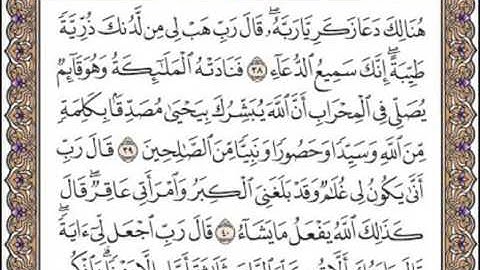 هُنَالِكَ دَعَا زَكَرِيَّا رَبَّهُۥۖ قَالَ رَبِّ هَبۡ لِي مِن لَّدُنكَ ذُرِّيَّةٗ
طَيِّبَةًۖ إِنَّكَ سَمِيعُ ٱلدُّعَآءِ ٣٨ فَنَادَتۡهُ ٱلۡمَلَٰٓئِكَةُ وَهُوَ قَآئِمٞ
يُصَلِّي فِي ٱلۡمِحۡرَابِ أَنَّ ٱللَّهَ يُبَشِّرُكَ بِيَحۡيَىٰ مُصَدِّقَۢا بِكَلِمَةٖ
مِّنَ ٱللَّهِ وَسَيِّدٗا وَحَصُورٗا وَنَبِيّٗا مِّنَ ٱلصَّٰلِحِينَ ٣٩ قَالَ رَبِّ
أَنَّىٰ يَكُونُ لِي غُلَٰمٞ وَقَدۡ بَلَغَنِيَ ٱلۡكِبَرُ وَٱمۡرَأَتِي عَاقِرٞۖ قَالَ
كَذَٰلِكَ ٱللَّهُ يَفۡعَلُ مَا يَشَآءُ ٤٠ قَالَ رَبِّ ٱجۡعَل لِّيٓ ءَايَةٗۖ